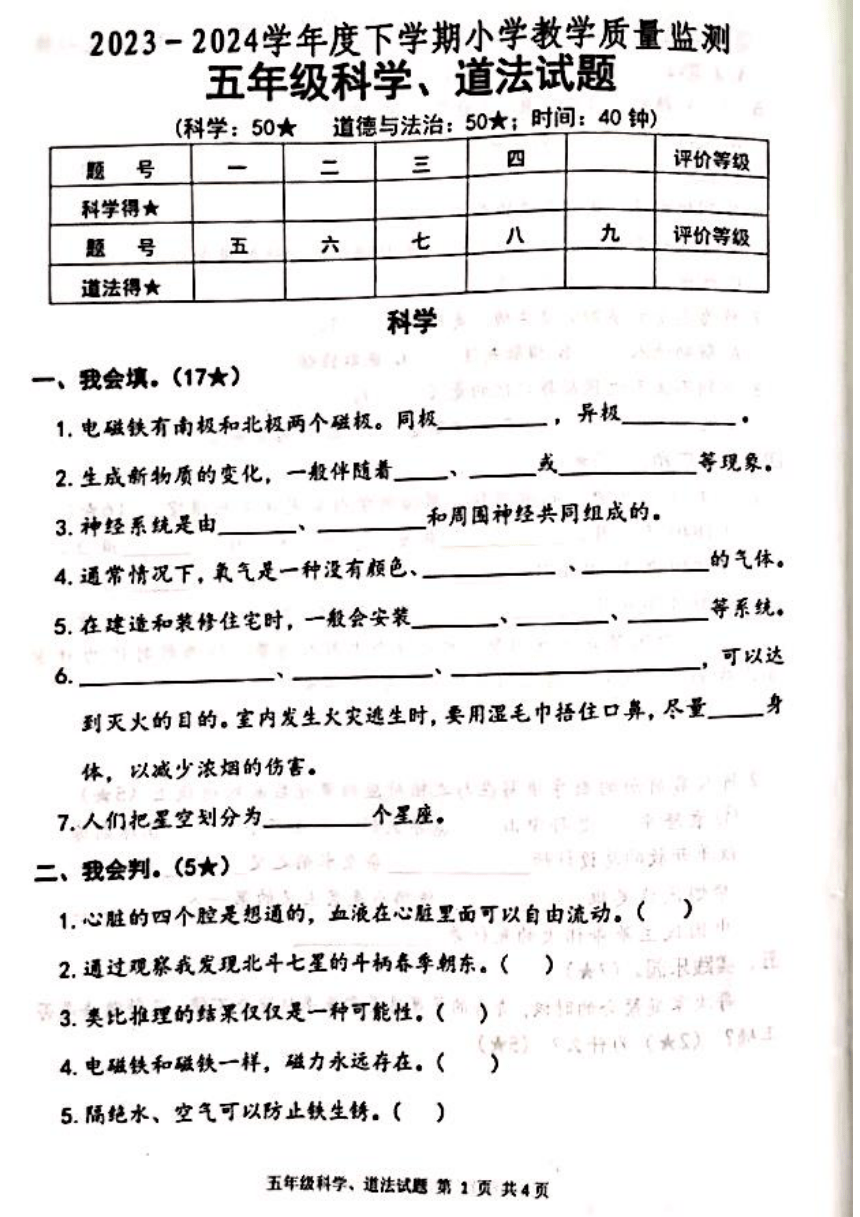 2023-2024学年度下学期小学教学质量监测
五年级科学、道法试题
(科学：50★ 道德与法治：50★；时间：40 钟)
题 号 一 二 三 四 评价等级
科学得★
题 号 五 六 七 八 九 评价等级
道法得★
科学
一、我会填。(17★)
1. 电磁铁有南极和北极两个磁极。同极________，异极________。
2. 生成新物质的变化，一般伴随着____、______或________等现象。
3. 神经系统是由______、________和周围神经共同组成的。
4. 通常情况下，氧气是一种没有颜色、________、________的气体。
5. 在建造和装修住宅时，一般会安装______、______、______等系统。
6. ____________、________、______________，可以达
到灭火的目的。室内发生火灾逃生时，要用湿毛巾捂住口鼻，尽量____身
体，以减少浓烟的伤害。
7. 人们把星空划分为________个星座。
二、我会判。(5★)
1. 心脏的四个腔是想通的，血液在心脏里面可以自由流动。( )
2. 通过观察我发现北斗七星的斗柄春季朝东。( )
3. 类比推理的结果仅仅是一种可能性。( )
4. 电磁铁和磁铁一样，磁力永远存在。( )
5. 隔绝水、空气可以防止铁生锈。( )
五年级科学、道法试题 第 1 页 共 4 页